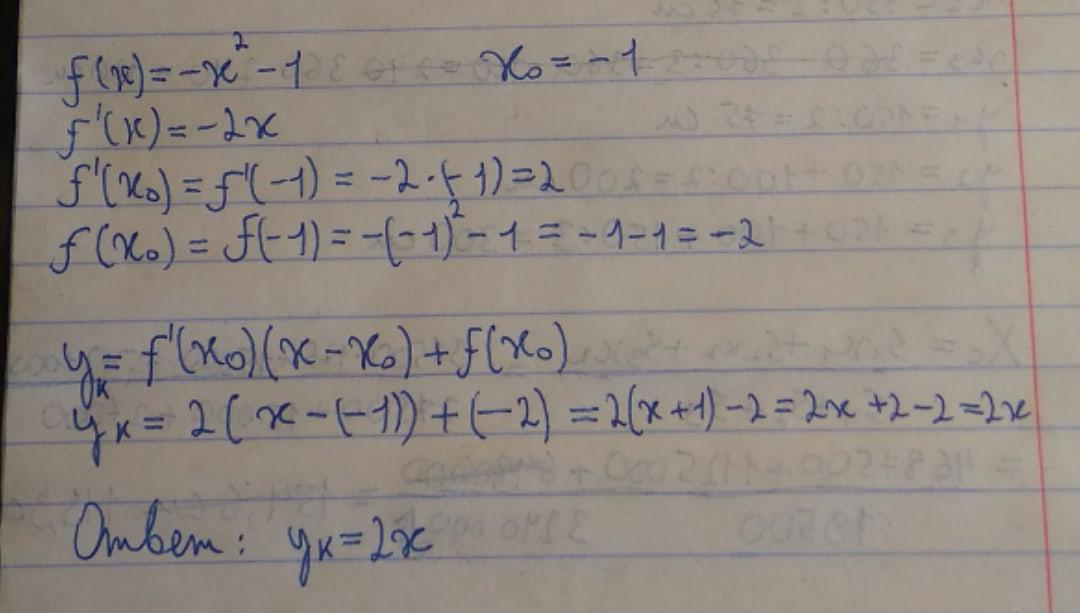 f(x)=-x²-1 x₀=-1
f'(x)=-2x
f'(x₀)=f'(-1)=-2·(-1)=2
f(x₀)=f(-1)=-(-1)²-1=-1-1=-2
yₖ=f'(x₀)(x-x₀)+f(x₀)
yₖ=2(x-(-1))+(-2)=2(x+1)-2=2x+2-2=2x
Ответ: yₖ=2x